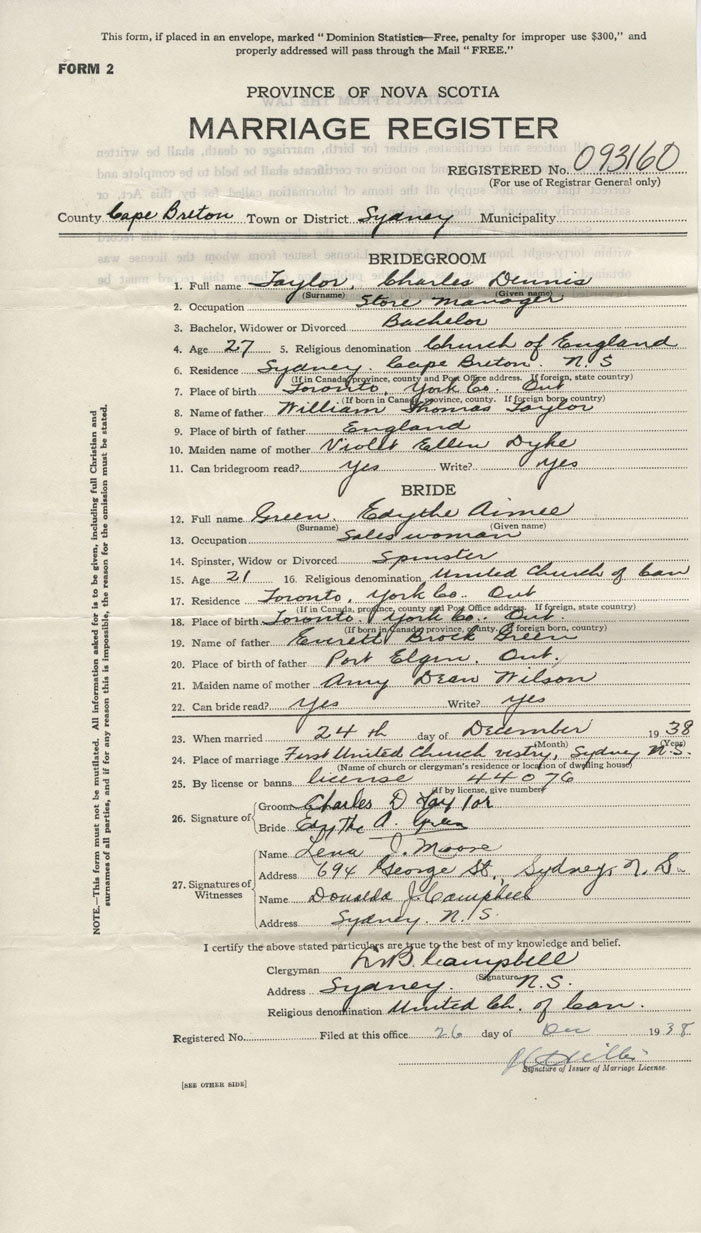 This form, if placed in an envelope, marked "Dominion Statistics—Free, penalty for improper use $300," and
properly addressed will pass through the Mail "FREE."
FORM 2
PROVINCE OF NOVA SCOTIA
MARRIAGE REGISTER
REGISTERED No. 093160
(For use of Registrar General only)
County Cape Breton Town or District Sydney Municipality
BRIDEGROOM
1. Full name Taylor, Charles Dennis
(Surname) (Given name)
2. Occupation Store Manager
3. Bachelor, Widower or Divorced Bachelor
4. Age 27 5. Religious denomination Church of England
6. Residence Sydney. Cape Breton N.S
(If in Canada, province, county and Post Office address. If foreign, state country)
7. Place of birth Toronto, York Co. Ont
(If born in Canada, province, county. If foreign born, country)
8. Name of father William Thomas Taylor
9. Place of birth of father England
10. Maiden name of mother Violet Ellen Dyke
11. Can bridegroom read? Yes Write? Yes
BRIDE
12. Full name Green, Edythe Aimee
(Surname) (Given name)
13. Occupation Saleswoman
14. Spinster, Widow or Divorced Spinster
15. Age 21 16. Religious denomination United Church of Can
17. Residence Toronto, York Co. Ont
(If in Canada, province, county and Post Office address. If foreign, state country)
18. Place of birth Toronto. York Co. Ont.
(If born in Canada province, county. If foreign born, country)
19. Name of father Everett Brock Green
20. Place of birth of father Port Elgin. Ont.
21. Maiden name of mother Amy Dean Wilson
22. Can bride read? Yes Write? Yes
23. When married 24th day of December 1938
(Month) (Year)
24. Place of marriage First United Church vestry, Sydney N.S.
(Name of church or clergyman's residence or location of dwelling house)
25. By license or banns license 44076
(If by license, give number)
26. Signature of Groom Charles D Taylor
Bride Edythe A. Green
27. Signatures of Witnesses
Name Lena J. Moore
Address 694 George St., Sydney, N.S.
Name Donalda J Campbell
Address Sydney. N.S.
I certify the above stated particulars are true to the best of my knowledge and belief.
Clergyman Campbell
(Signature)
Address Sydney. N.S.
Religious denomination United Ch. of Can.
Registered No. Filed at this office 26 day of Dec 1938
Signature of Issuer of Marriage License.
[SEE OTHER SIDE]
NOTE.—This form must not be mutilated. All information asked for is to be given, including full Christian and
surnames of all parties, and if for any reason this is impossible, the reason for the omission must be stated.